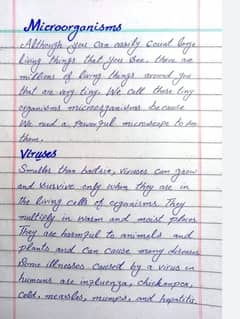 Microorganisms
Although you can easily count large
living things that you see, there are
millions of living things around you
that are very tiny. We call these tiny
organisms microorganisms because
We need a powerful microscope to see
them.
Viruses
Smaller than bacteria, viruses can grow
and survive only when they are in
the living cells of organisms. They
multiply in warm and moist places
They are harmful to animals and
plants and can cause many diseases
Some illnesses caused by a virus in
humans are influenza, chickenpox,
cold, measles, mumps, and hepatitis